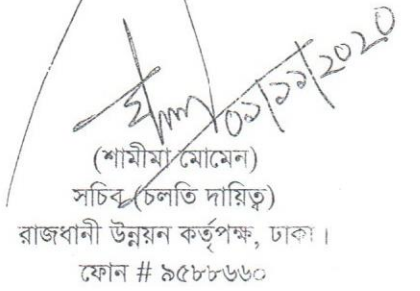 ০১/১১/২০২০
(শামীমা মোমেন)
সচিব (চলতি দায়িত্ব)
রাজধানী উন্নয়ন কর্তৃপক্ষ, ঢাকা।
ফোন # ৯৫৮৮৬৬০